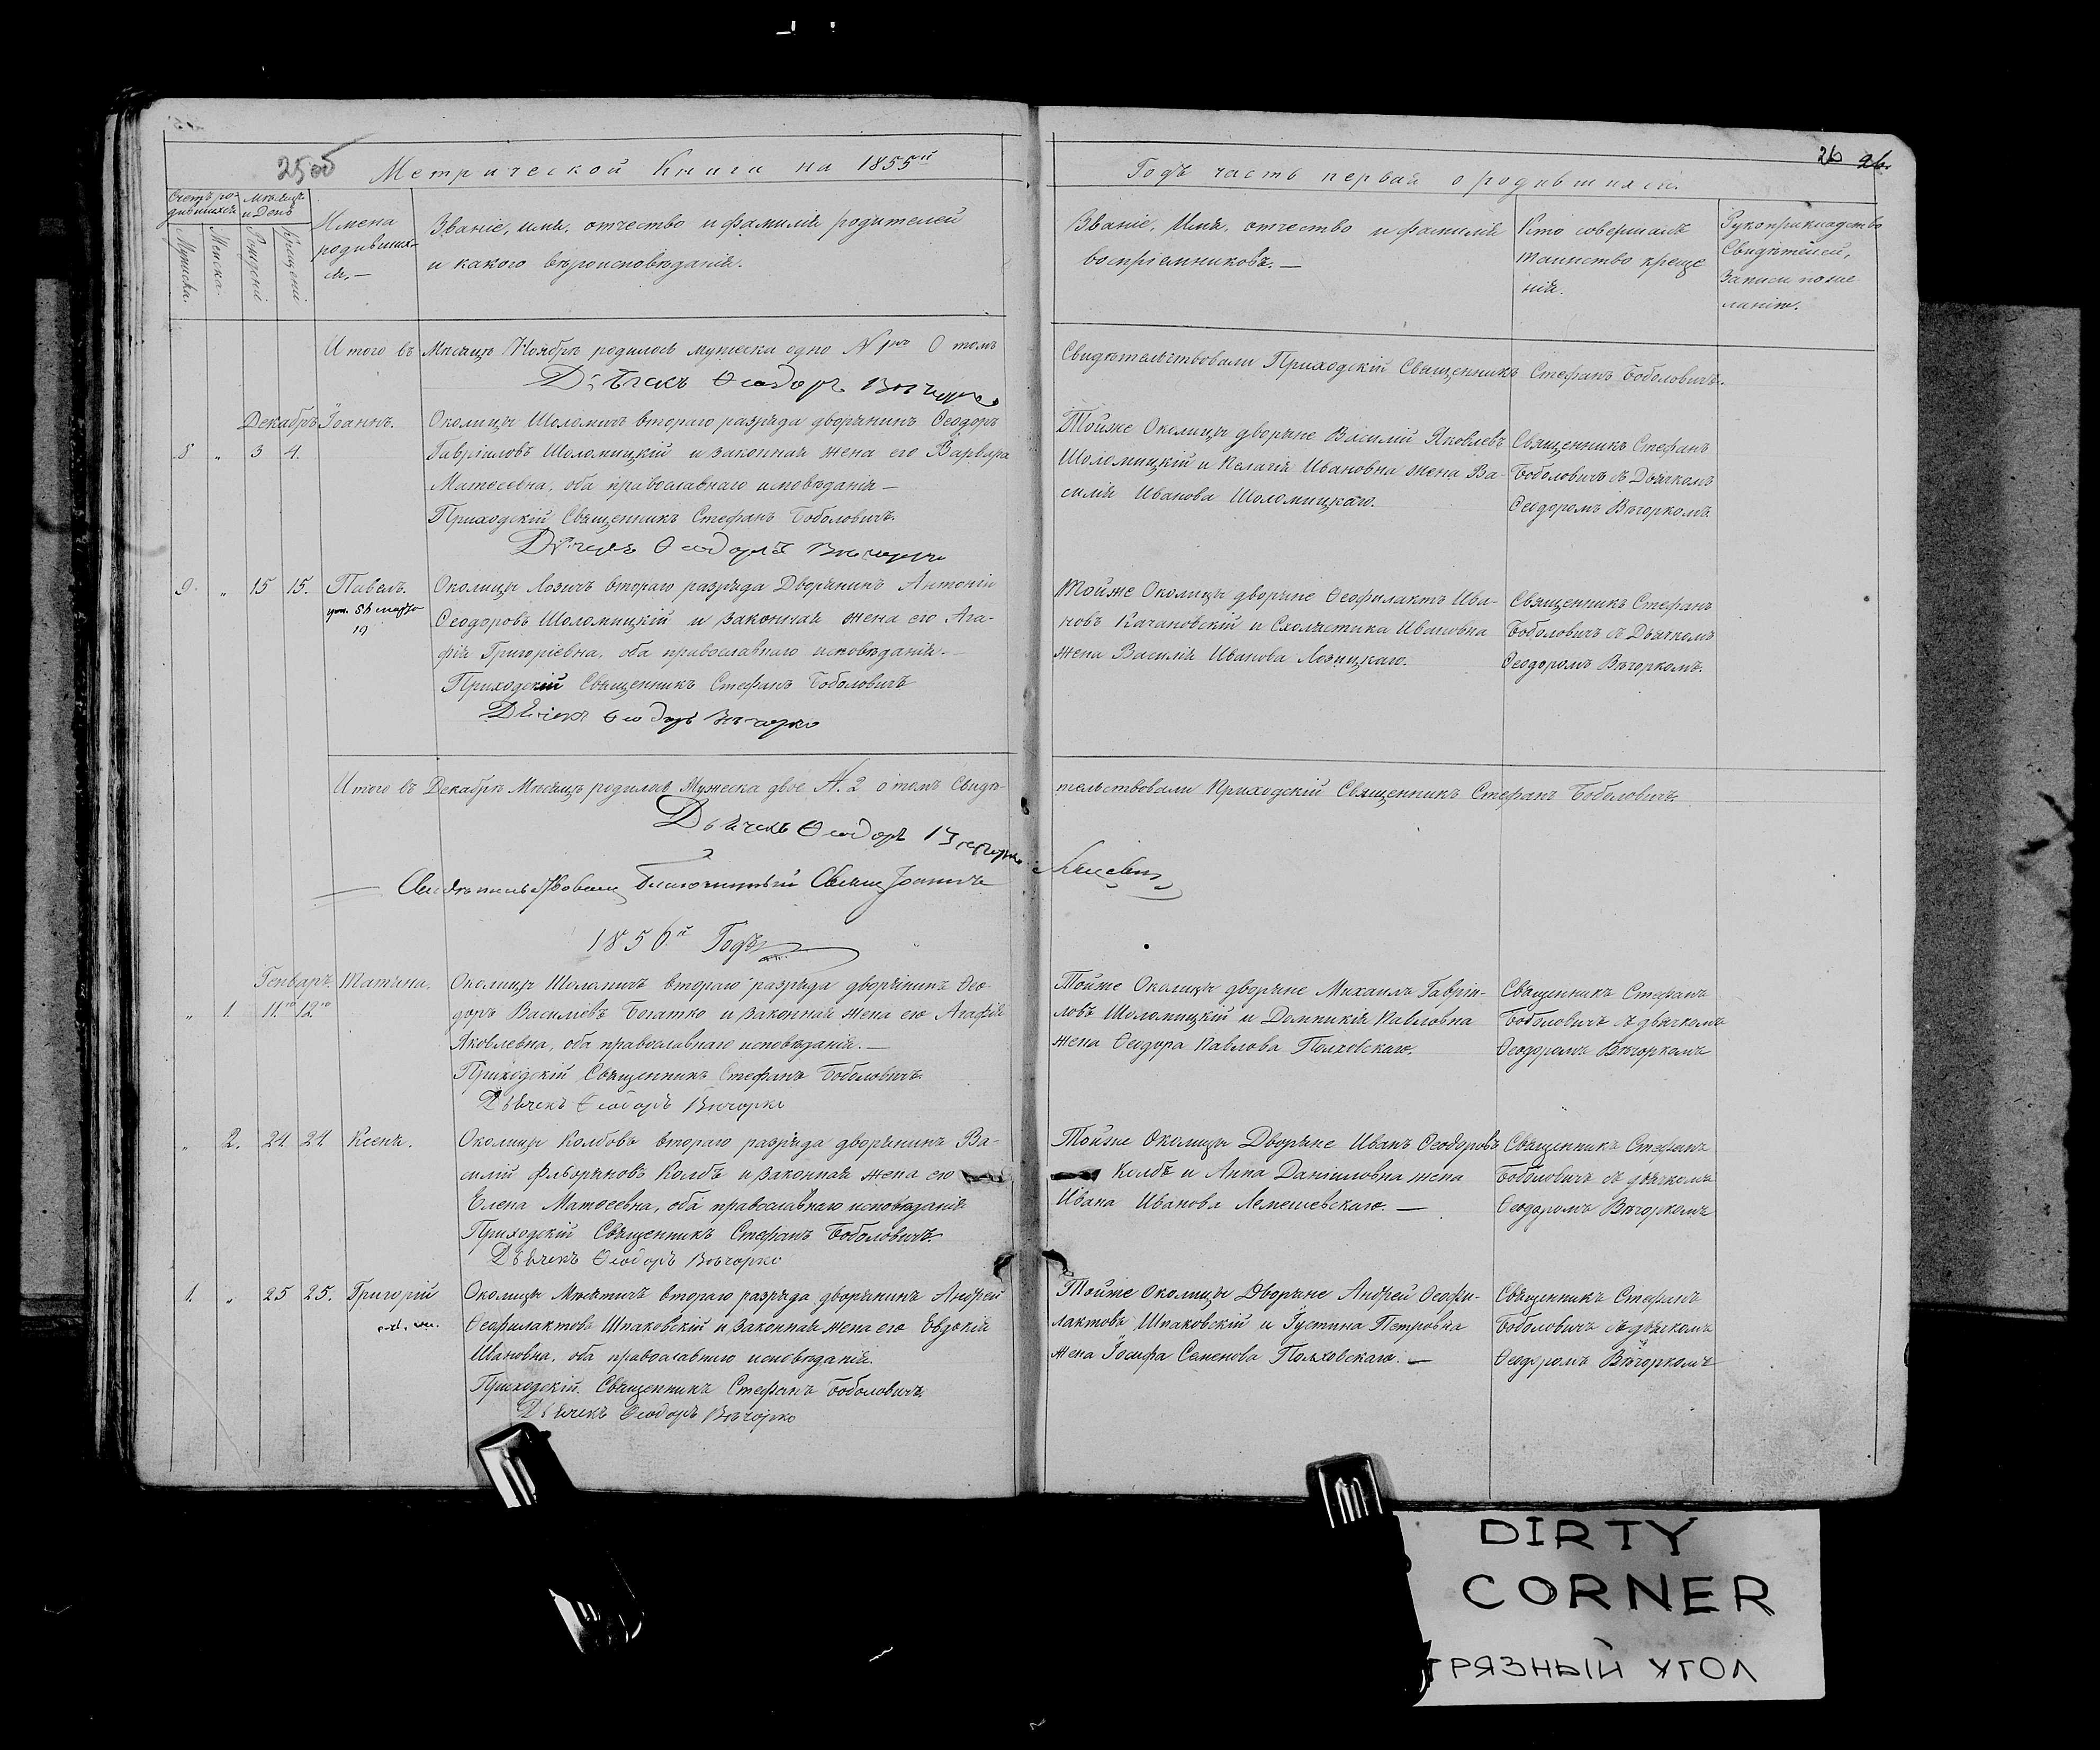 25об
Метрической Книги на 1855й
Счетъ ро-
дившихся
Мѣсяцъ
и День
Мужеска.
Женска.
Рожденій
Крещеній
Имена
родивших-
ся. —
Званіе, имя, отчество и фамилія родителей
и какого вѣроисповѣданія.
Итого въ Мѣсяцѣ Ноябрѣ родилось мужеска одно О томъ
Дьячекъ Ѳеодоръ Вѣчорко
Декабрь Іоаннъ. Околицы Шоломичъ втораго разряда дворянинъ Ѳеодоръ
8 „ 3 4. Гавріиловъ Шоломицкій и законная жена его Варвара
Матѳеевна, оба православнаго исповѣданія —
Приходскій Священникъ Стефанъ Боболовичъ.
Дьячекъ Ѳеодоръ Вѣчорко
9. „ 15 15. Павелъ. Околицы Лозичъ втораго разряда Дворянинъ Антоній
19
Ѳеодоровъ Шоломицкій и законная жена его Ага-
фія Григоріевна, оба православнаго исповѣданія. —
Приходскій Священникъ Стефанъ Боболовичъ
Дьячекъ Ѳеодоръ Вѣчорко
Итого въ Декабрѣ Мѣсяцѣ родилось Мужеска двое №. 2 о томъ Свидѣ-
Дьячекъ Ѳеодоръ Вѣчорко
Свидѣтельствовалъ Благочинный Священ Іоаннъ
1856й Годъ
Генварь. Татіана. Околицы Шоломичъ втораго разряда дворянинъ Ѳео-
„ 1. 11го 12го доръ Василіевъ Богатко и законная жена его Агафія
Яковлевна, оба православнаго исповѣданія. —
Приходскій Священникъ Стефанъ Боболовичъ.
Дьячекъ Ѳеодоръ Вѣчорко
„ 2. 24 24 Ксенія. Околицы Колбовъ втораго разряда дворянинъ Ва-
силій Флоріановъ Колбъ и законная жена его
Елена Матѳеевна, оба православнаго исповѣданія
Приходскій Священникъ Стефанъ Боболовичъ.
Дьячекъ Ѳеодоръ Вѣчорко
1. „ 25 25. Григорій Околицы Мнѣтичъ втораго разряда дворянинъ Андрей
Ѳеофилактовъ Шпаковскій и законная жена его Евдокія
Ивановна, оба православнаго исповѣданія.
Приходскій Священникъ Стефанъ Боболовичъ
Дьячекъ Ѳеодоръ Вѣчорко
26 26.
Годъ часть первая о родившихся.
Званіе, Имя, отчество и фамилія
воспріемниковъ. —
Кто совершалъ
таинство креще
нія.
Рукоприкладство
Свидѣтелей,
Записи по же
ланію.
Свидѣтельствовали Приходскій Священникъ Стефанъ Боболовичъ.
Тойже Околицы дворяне Василій Яковлевъ
Шоломицкій и Пелагія Ивановна жена Ва-
силія Иванова Шоломицкаго.
Священникъ Стефанъ
Боболовичъ съ Дьячкомъ
Ѳеодоромъ Вѣчоркомъ.
Тойже Околицы дворяне Ѳеофилактъ Ива-
новъ Качановскій и Схоластика Ивановна
жена Василія Иванова Лозицкаго.
Священникъ Стефанъ
Боболовичъ съ Дьячкомъ
Ѳеодоромъ Вѣчоркомъ.
тельствовали Приходскій Священникъ Стефанъ Боболовичъ.
Тойже Околицы дворяне Михаилъ Гавріи-
ловъ Шоломицкій и Домникія Павловна
жена Ѳеодора Павлова Полховскаго.
Священникъ Стефанъ
Боболовичъ съ дьячкомъ
Ѳеодоромъ Вѣчоркомъ
Тойже Околицы Дворяне Иванъ Ѳеодоровъ
Колбъ и Анна Даніиловна жена
Ивана Иванова Лемешевскаго. —
Священникъ Стефанъ
Боболовичъ съ дьячкомъ
Ѳеодоромъ Вѣчоркомъ
Тойже Околицы Дворяне Андрей Ѳеофи-
лактовъ Шпаковскій и Іустина Петровна
жена Іосифа Семенова Полховскаго. —
Священникъ Стефанъ
Боболовичъ съ дьячкомъ
Ѳеодоромъ Вѣчоркомъ
DIRTY
CORNER
ГРЯЗНЫЙ УГОЛ